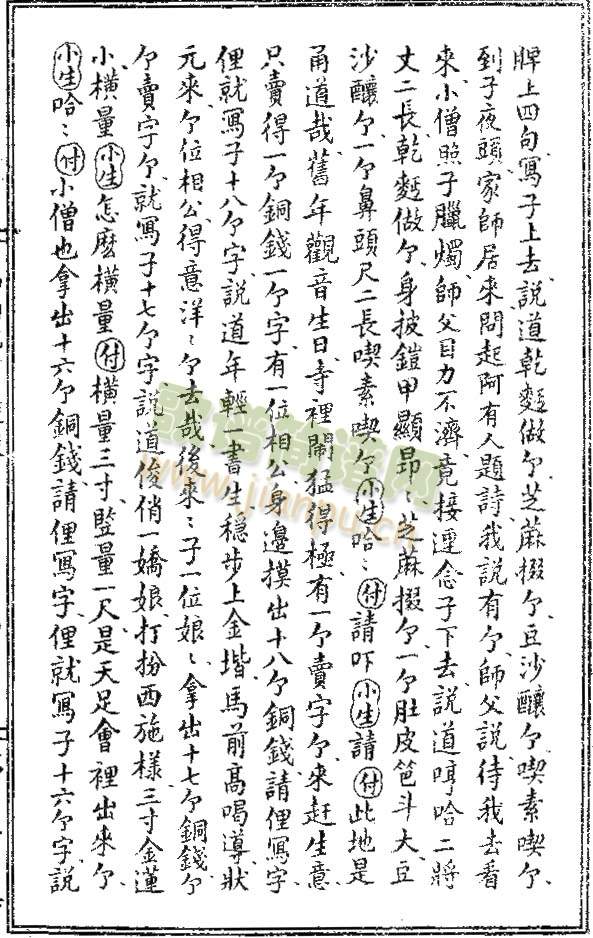 脾上四句寫子上去説道乾麵做𠆩芝蔴掇𠆩豆沙釀𠆩喫素喫𠆩
到子夜頭家師居来問起阿有人題詩我説有𠆩師父説待我去看
來小僧照子臘燭師父目力不濟竟接連念子下去説道呵哈二將
丈二長乾麵做𠆩身披鎧甲顯昂〻芝蔴掇𠆩一𠆩肚皮笆斗大豆
沙釀𠆩一𠆩鼻頭尺二長喫素喫𠆩小生哈〻付請吓小生請付此地是
甬道哉舊年觀音生日寺裡鬧猛得極有一𠆩賣字𠆩來赶生意
只賣得一𠆩銅錢一𠆩字有一位相公身邊摸出十八𠆩銅錢請俚寫字
俚就寫子十八𠆩字説道年輕一書生穩步上金堦馬前高喝導狀
元來𠆩位相公得意洋〻𠆩去哉後來〻子一位娘〻拿出十七𠆩銅錢𠆩
𠆩賣字𠆩就寫子十七𠆩字説道俊俏一嬌娘打扮西施樣三寸金蓮
小横量小生怎麽横量付横量三寸豎量一尺是天足會裡出來𠆩
小生哈〻付小僧也拿出十六𠆩銅錢請俚寫字俚就寫子十六𠆩字説
www.jianpu.cn